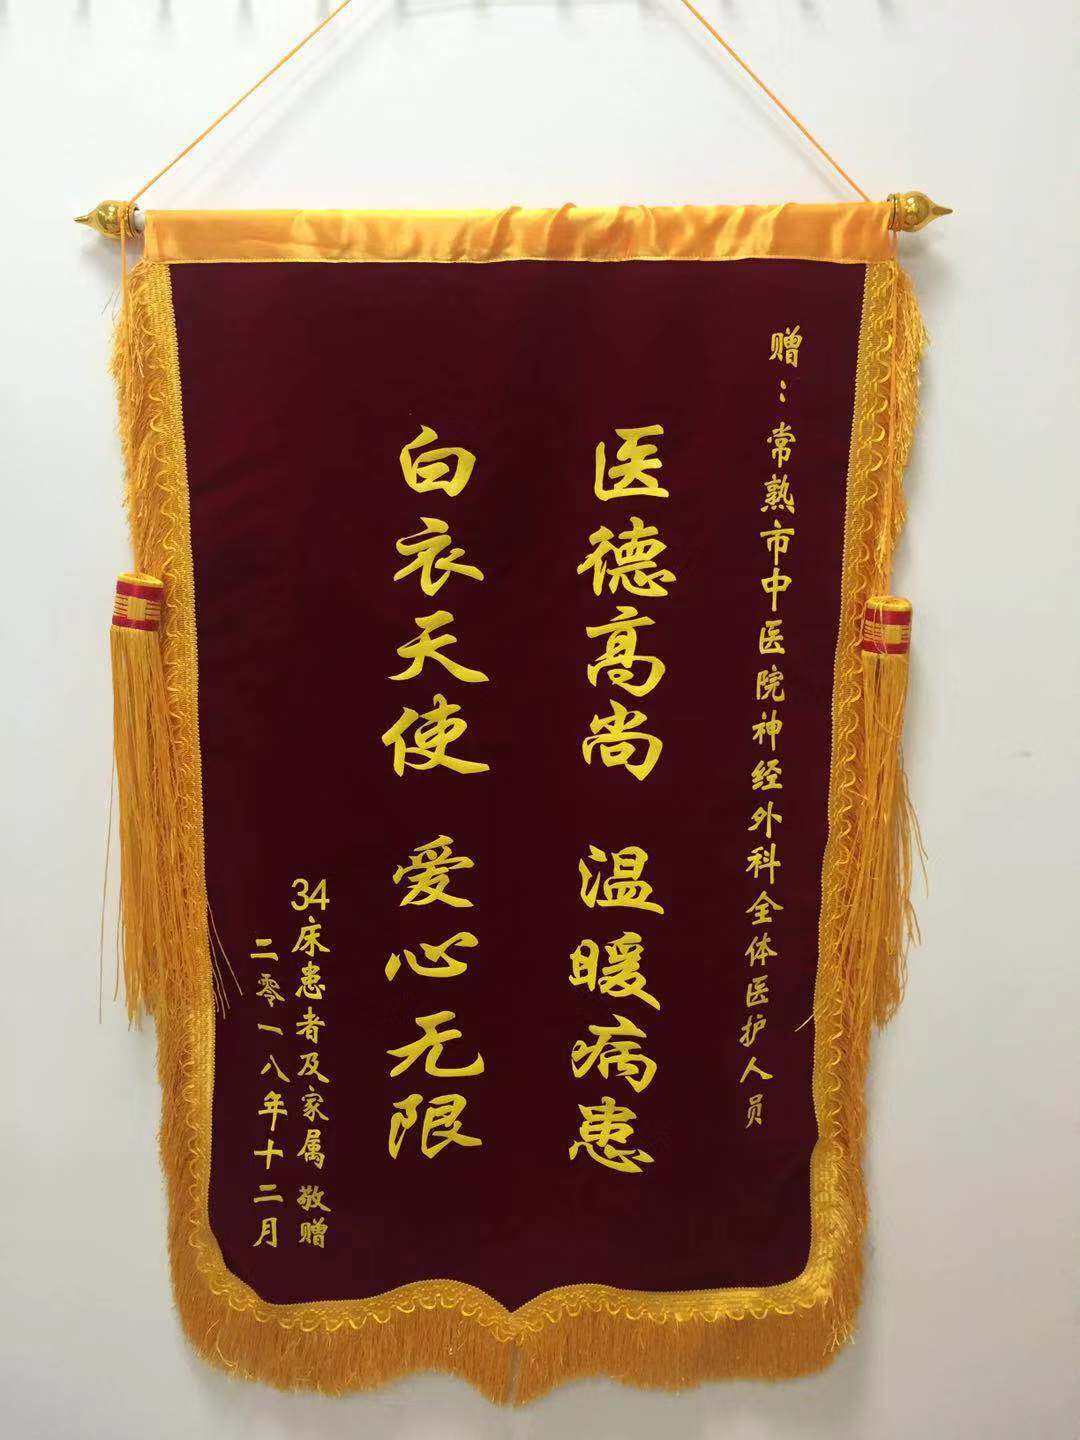 赠：常熟市中医院神经外科全体医护人员
医德高尚 温暖病患
白衣天使 爱心无限
34床患者及家属 敬赠
二零一八年十二月